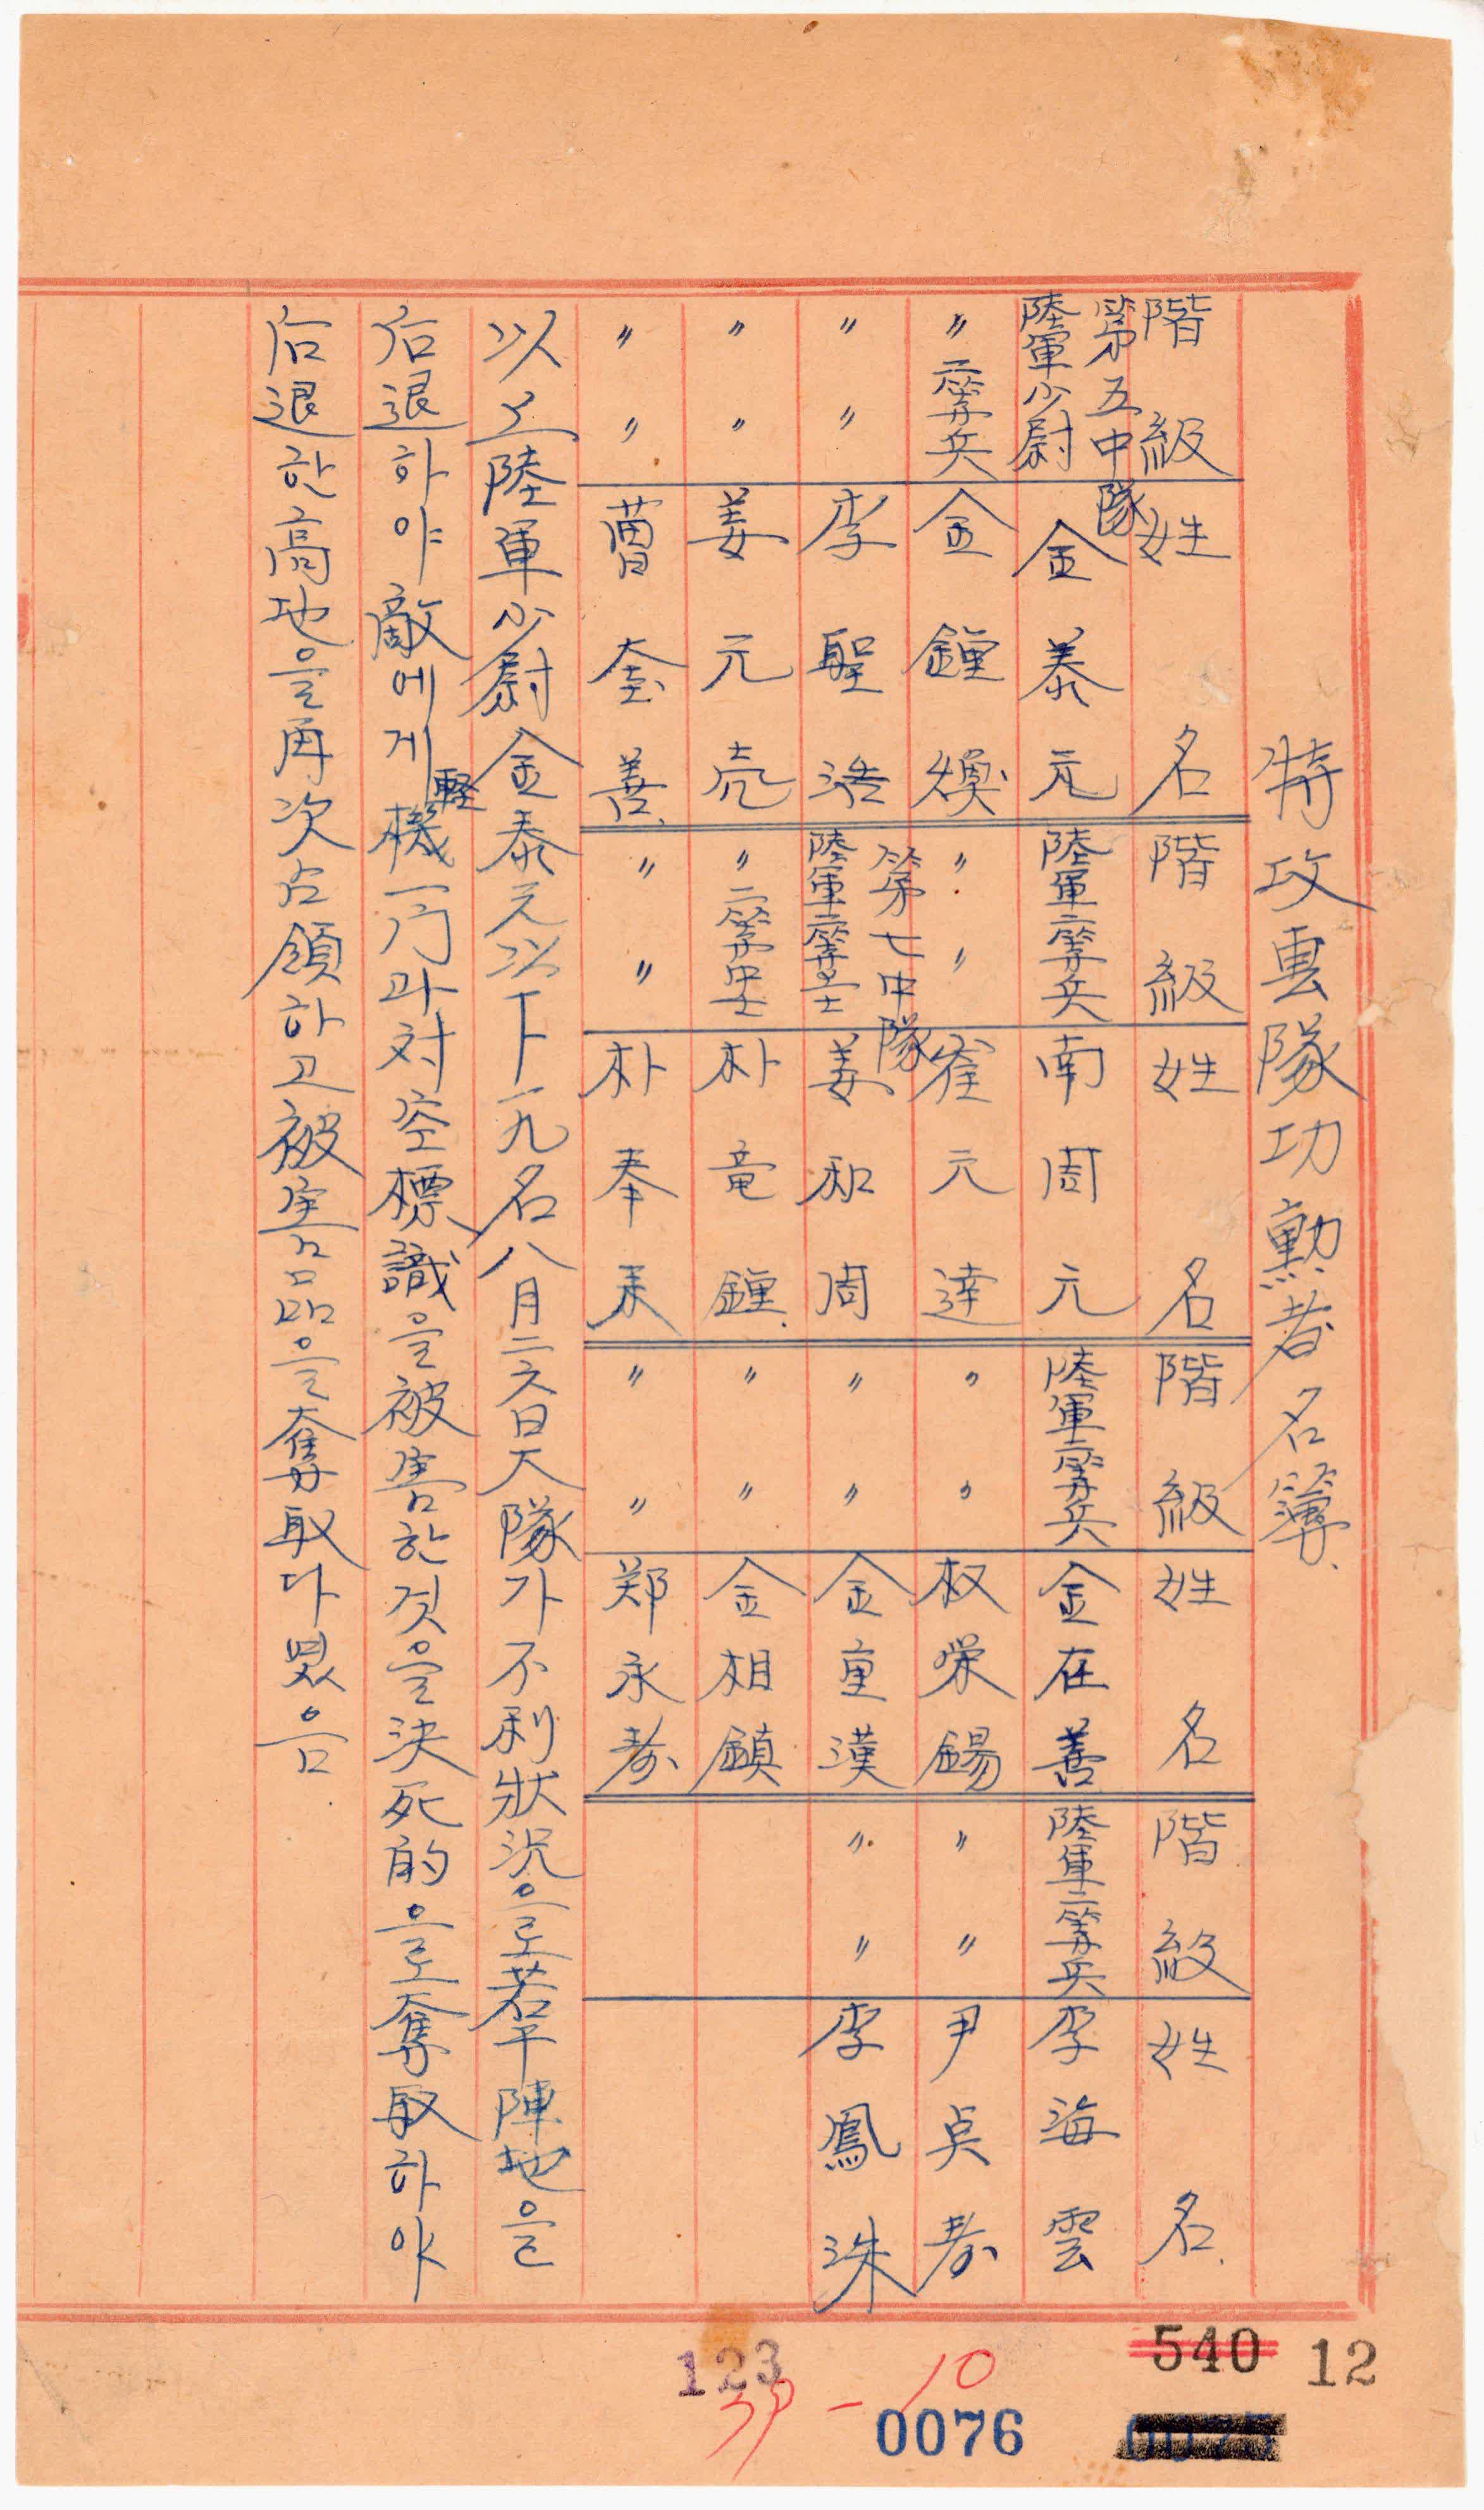 特攻隊功勲者名簿
階級 姓名 階級 姓名 階級 姓名 階級 姓名
第五中隊
陸軍少尉 金泰元 陸軍二等兵 南周元 陸軍二等兵 金在善 陸軍二等兵 李海雲
〃 二等兵 金鍾煥 〃 〃 崔元達 〃 〃 权栄錫 〃 〃 尹点寿
第七中隊
〃 〃 李聖浩 陸軍二等 姜和周 〃 〃 金重漢 〃 〃 李鳳洙
〃 〃 姜元亮 〃 朴竜鍾 〃 〃 金相鎮
〃 〃 曺奎善 〃 〃 朴奉来 〃 〃 郑永寿
以上陸軍少尉金泰元以下一九名八月二六日大隊가不利狀況으로若干陣地을
后退하야敵에게軽機一門과対空標識을被害한것을决死的으로奪取하야
后退한高地을再次占領하고被害品을奪取다였음
123
39-10
540
12
0076